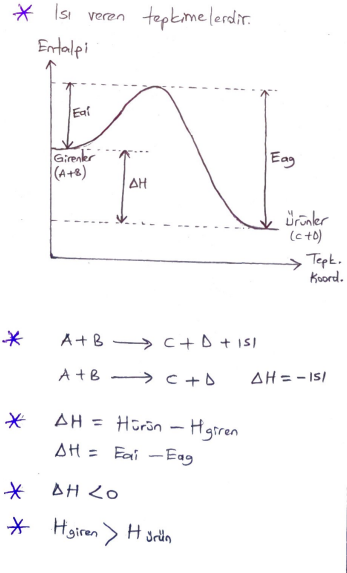 * Isı veren tepkimelerdir.
Entalpi
Eai
Girenler
(A+B)
ΔH
Eag
Ürünler
(C+D)
Tepk.
Koord.
* A+B → C+D+ISI
A+B → C+D ΔH = -ISI
* ΔH = Hürün - Hgiren
ΔH = Eai - Eag
* ΔH < 0
* Hgiren > Hürün